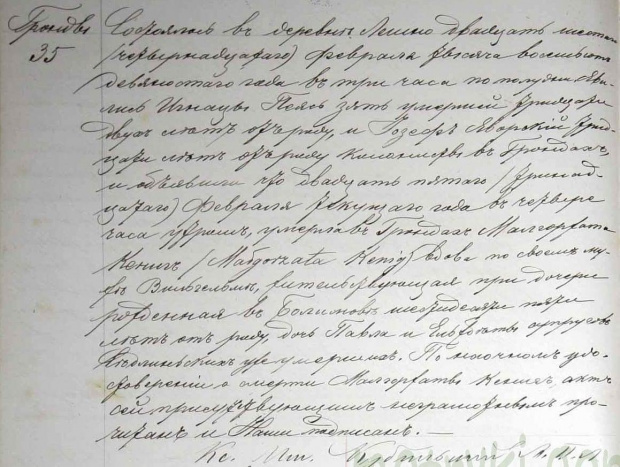 Грондзы
35
Состоялось въ деревни Лешно двадцать шестаго
/четвернадцатаго/ Февраля тысяча восемьсотъ
девяностаго года въ три часа по полудни. Яви
лись Игнацы зять умершей тридцати
двухъ лѣтъ отъ роду, и Іозефъ Яворскій трид-
цати лѣтъ отъ роду колонисты въ Грондахъ,
и объявили что двадцать пятаго /тринад-
цатаго/ Февраля текущаго года въ четыре
часа утромъ, умерла въ Грондахъ Малгоржата
Кенигъ /Małgorzata Kenig/ вдова по своемъ му-
жѣ Вильгельмѣ, жительствующая при дочери
рожденная въ Болимовѣ шестидесяти пяти
лѣтъ отъ роду, дочь Павла и Ельжбеты супруговъ
уже умершихъ. По наочномъ удо-
стовереніи о смерти Малгоржаты Кенигъ, актъ
сей присутствующимъ неграмотнымъ про-
читанъ и Нами подписанъ. —
Кс.